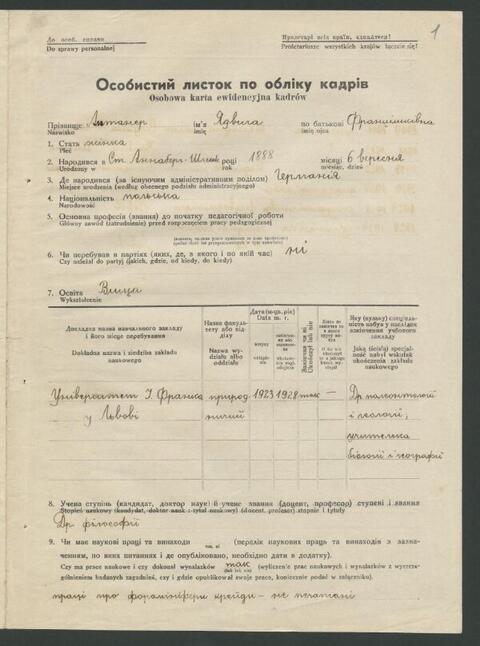 До особ. справи
Do sprawy personalnej
Пролетарі всіх країн, єднайтеся!
Proletariusze wszystkich krajów łączcie się!
1
Особистий листок по обліку кадрів
Osobowa karta ewidencyjna kadrów
Прізвище ім'я Ядвига по батькові Францішківна
Nazwisko imię imię ojca
1. Стать жінка
Płeć
2. Народився в Ст. Аннаберг - році 1888 місяці 6 вересня
Urodzony w roku miesiąc, dzień
3. Де народився (за існуючим адміністративним поділом) Германія
Miejsce urodzenia (według obecnego podziału administracyjnego)
4. Національність полька
Narodowość
5. Основна професія (звання) до початку педагогічної роботи
Główny zawód (zatrudnienie) przed rozpoczęciem pracy pedagogicznej
6. Чи перебував в партіях (яких, де, з якого і по якій час) ні
Czy należał do partyj (jakich, gdzie, od kiedy, do kiedy)
7. Освіта Вища
Wykształcenie
Докладна назва навчального закладу і його місце перебування
Dokładna nazwa i siedziba zakładu naukowego
Назва факультету або відділу
Nazwa wydziału albo oddziału
Дата (м-ць, рік)
Data m. r.
Закінчив чи ні
Ukończył lub nie
Яку (вузьку) спеціальність набув у наслідок закінчення учбового закладу
Jaką (ścisłą) specjalność nabył wskutek ukończenia zakładu naukowego
Університет І. Франка природ- 1923 1928 так — Др палеонтології
у Львові ничий і геології;
учителька
біології і географії
8. Учена ступінь (кандидат, доктор наук) й учене звання (доцент, професор) ступені і звання
Stopień naukowy (kandydat, doktor nauk i tytuł naukowy) (docent, profesor) stopnie i tytuły
Др. філософії
9. Чи має наукові праці та винаходи (перелік наукових праць та винаходів з зазна-
так, ні
ченням, по яких питаннях і де опубліковано, необхідно дати в додатку).
Cza ma prace naukowe i czy dokonał wynalazków так (wyliczenie prac naukowych i wynalazków z wyszcze-
(tak lub nie)
gólnieniem badanych zagadnień, czy i gdzie opublikował swoje prace, koniecznie podać w załączniku).
праці про форамініфери крейди - не печатані